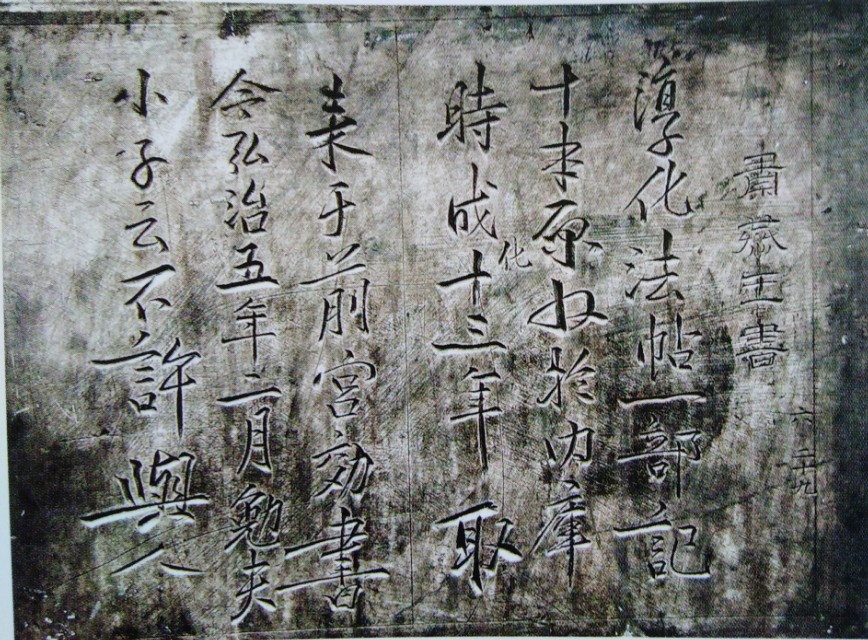 肅恭王書
淳化法帖一部記
十本原収於内庫
時成化十三年取
来于前宮効書
今弘治五年二月勉夫
小子云不許與人